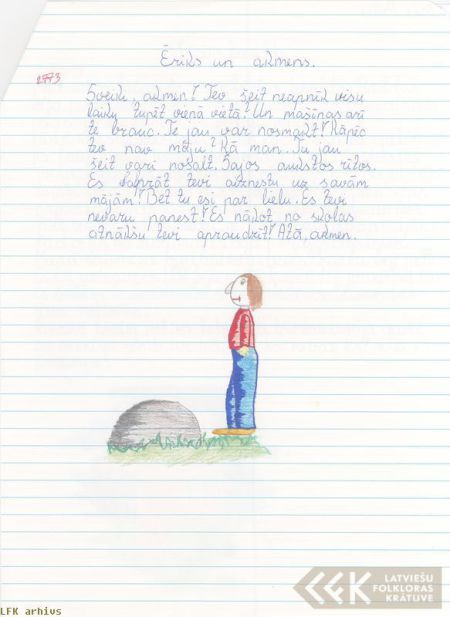 Ēriks un akmens.
2773
Sveiks, akmen! Tev šeit neapnīk visu
laiku tupēt vienā vietā? Un mašīnas arī
te brauc. Te jau var nosmakt! Kāpēc
tev nav māju? Kā man. Tu jau
šeit vari nosalt. Šajos aukstos rītos.
Es labprāt tevi aiznestu uz savām
mājām! Bet tu esi par lielu. Es tevi
nevaru panest! Es nākot no skolas
atnākšu tevi apraudzīt! Atā, akmen.
LATVIEŠU
FOLKLORAS
KRĀTUVE
LFK arhīvs